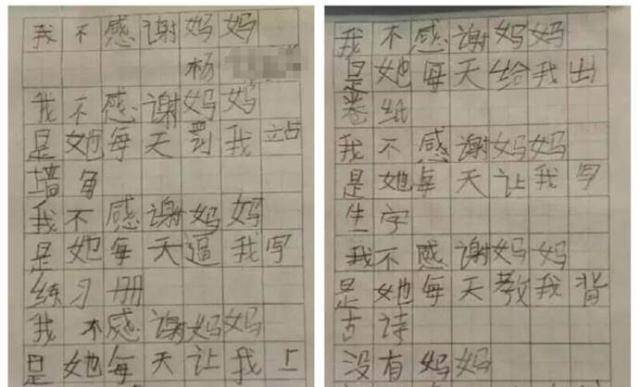 我不感谢妈妈
杨
我不感谢妈妈
是她每天罚我站
墙角
我不感谢妈妈
是她每天逼我写
练习册
我不感谢妈妈
是她每天让我上
我不感谢妈妈
是她每天给我出
卷纸
我不感谢妈妈
是她每天让我写
生字
我不感谢妈妈
是她每天教我背
古诗
没有妈妈